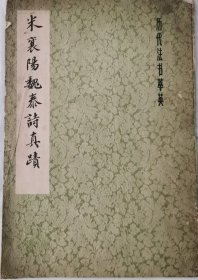 米襄陽魏泰詩真蹟
历代法书萃英